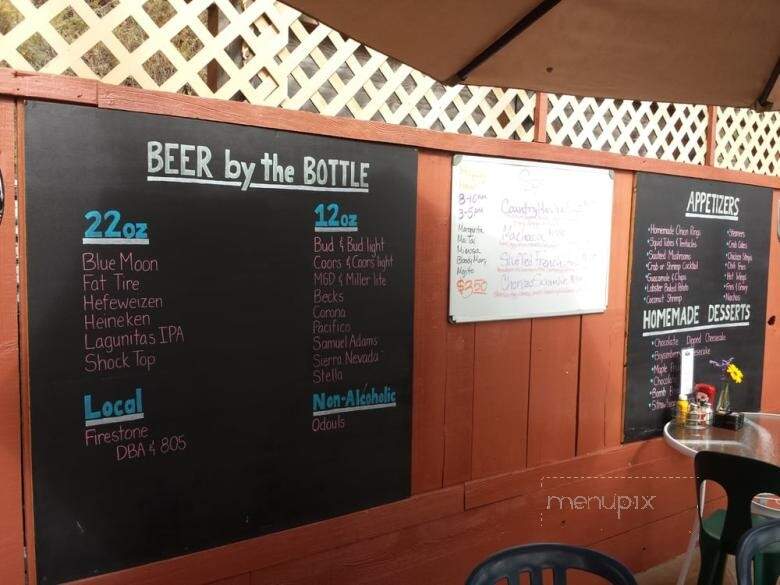 BEER by the BOTTLE
22oz
Blue Moon
Fat Tire
Hefeweizen
Heineken
Lagunitas IPA
Shock Top
Local
Firestone
DBA & 805
12oz
Bud & Bud light
Coors & Coors light
MGD & Miller lite
Becks
Corona
Pacifico
Samuel Adams
Sierra Nevada
Stella
Non-Alcoholic
Odouls
3-5
Margarita
Mai Tai
Mimosa
Bloody Mary
Mojito
$3.50
Machaca
APPETIZERS
Homemade Onion Rings
Squid Tubes & Tentacles
Sauteed Mushrooms
Crab or Shrimp Cocktail
Guacamole & Chips
Lobster Baked Potato
Coconut Shrimp
Steamers
Crab Cakes
Chicken Strips
Chili Fries
Hot Wings
Nachos
HOMEMADE DESSERTS
Chocolate Dipped Cheesecake
Boysenberry Cheesecake
Maple
menupix